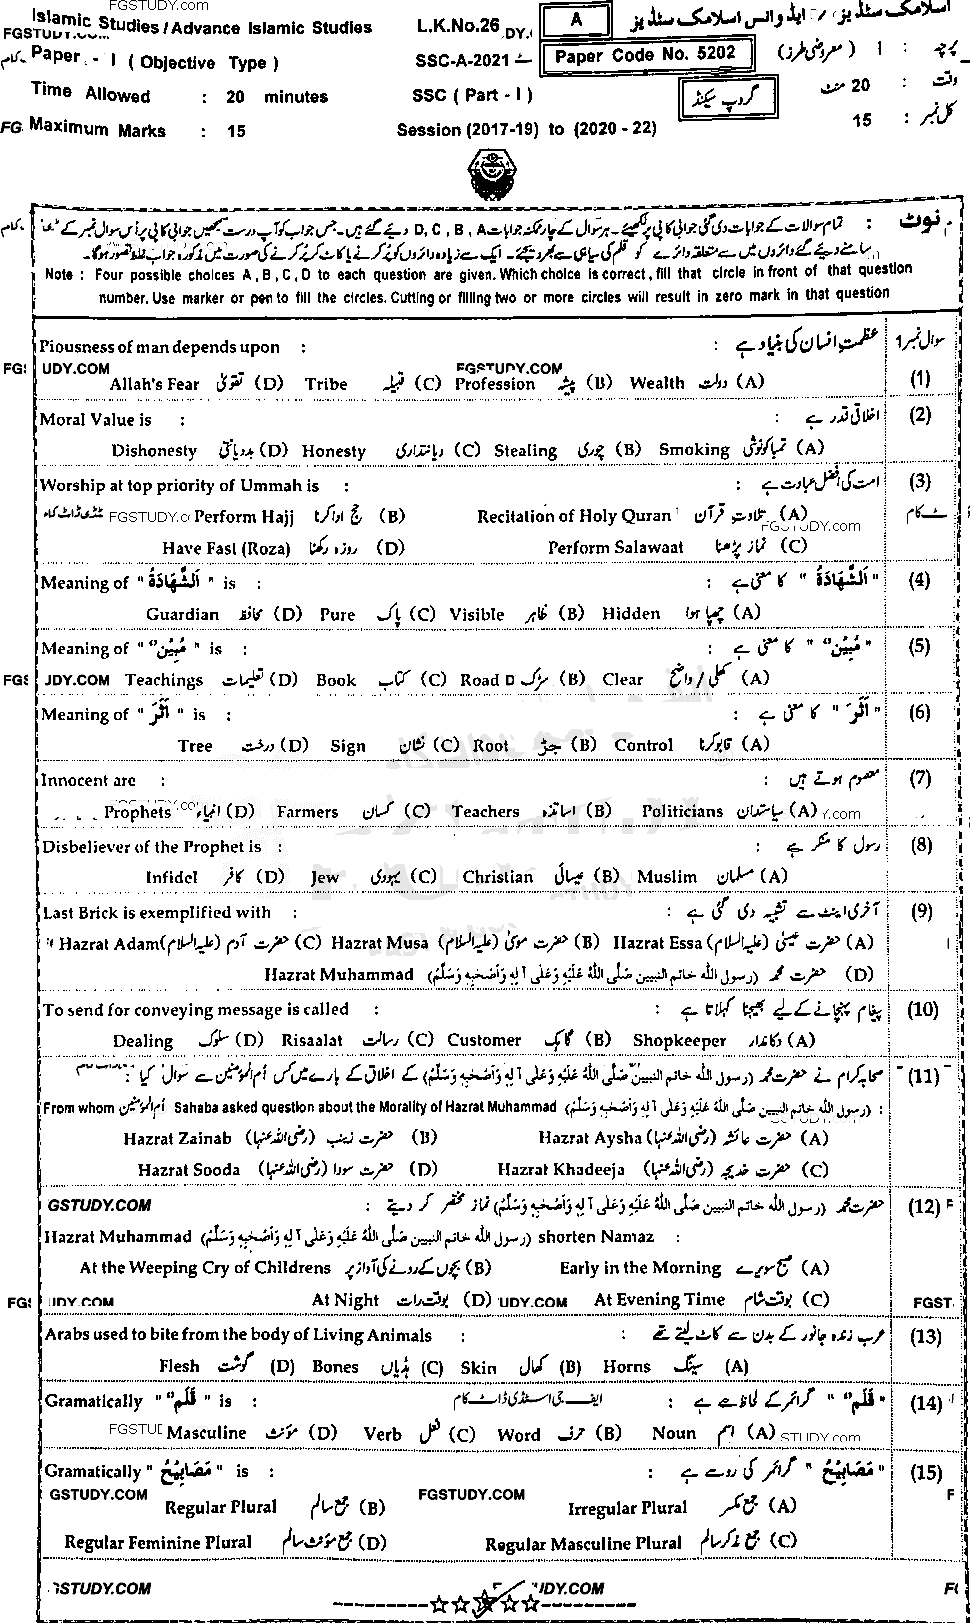 FGSTUDY.com
Islamic Studies/Advance Islamic Studies L.K.No.26 A اسلامک سٹڈیز / ایڈوانس اسلامک سٹڈیز
Paper - I ( Objective Type ) SSC-A-2021 Paper Code No. 5202 پرچہ : I (معروضی طرز)
Time Allowed : 20 minutes SSC ( Part - I ) گروپ سیکنڈ وقت : 20 منٹ
Maximum Marks : 15 Session (2017-19) to (2020 - 22) کل نمبر : 15
نوٹ : تمام سوالات کے جوابات دی گئی جوابی کاپی پر لکھیئے۔ ہر سوال کے چار ممکنہ جوابات D, C, B, A دیئے گئے ہیں۔ جس جواب کو آپ درست سمجھیں جوابی کاپی پر اُس سوال نمبر کے
سامنے دیئے گئے دائروں میں سے متعلقہ دائرے کو قلم کی سیاہی سے بھر دیجئے۔ ایک سے زیادہ دائروں کو پُر کرنے یا کاٹ کر پُر کرنے کی صورت میں مذکورہ جواب غلط تصور ہوگا۔
Note : Four possible choices A , B , C , D to each question are given. Which choice is correct , fill that circle in front of that question
number. Use marker or pen to fill the circles. Cutting or filling two or more circles will result in zero mark in that question
Piousness of man depends upon : عظمتِ انسان کی بنیاد ہے : سوال نمبر 1
(1)
Allah's Fear تقویٰ (D) Tribe قبیلہ (C) Profession پیشہ (B) Wealth دولت (A)
Moral Value is : اخلاقی قدر ہے : (2)
Dishonesty بددیانتی (D) Honesty دیانتداری (C) Stealing چوری (B) Smoking تمباکونوشی (A)
Worship at top priority of Ummah is : امت کی افضل عبادت ہے : (3)
Perform Hajj حج ادا کرنا (B) Recitation of Holy Quran تلاوتِ قرآن (A)
Have Fast (Roza) روزہ رکھنا (D) Perform Salawaat نماز پڑھنا (C)
Meaning of " اَلشَّهَادَةُ " is : " اَلشَّهَادَةُ " کا معنی ہے : (4)
Guardian محافظ (D) Pure پاک (C) Visible ظاہر (B) Hidden چھپا ہوا (A)
Meaning of " مُبِيْنٌ " is : " مُبِيْنٌ " کا معنی ہے : (5)
Teachings تعلیمات (D) Book کتاب (C) Road سڑک (B) Clear کھلی / واضح (A)
Meaning of " اَثَرَ " is : " اَثَرَ " کا معنی ہے : (6)
Tree درخت (D) Sign نشان (C) Root جڑ (B) Control قابو کرنا (A)
Innocent are : معصوم ہوتے ہیں : (7)
Prophets انبیاء (D) Farmers کسان (C) Teachers اساتذہ (B) Politicians سیاستدان (A)
Disbeliever of the Prophet is : رسول کا منکر ہے : (8)
Infidel کافر (D) Jew یہودی (C) Christian عیسائی (B) Muslim مسلمان (A)
Last Brick is exemplified with : آخری اینٹ سے تشبیہ دی گئی ہے : (9)
Hazrat Adam حضرت آدم (علیہ السلام) (C) Hazrat Musa حضرت موسیٰ (علیہ السلام) (B) Hazrat Essa حضرت عیسیٰ (علیہ السلام) (A)
Hazrat Muhammad حضرت محمد (رسول اللہ خاتم النبیین صَلَّی اللہُ عَلَیْہِ وَعَلٰی آلِہٖ وَاَصْحٰبِہٖ وَسَلَّمَ) (D)
To send for conveying message is called : پیغام پہنچانے کے لیے بھیجنا کہلاتا ہے : (10)
Dealing سلوک (D) Risaalat رسالت (C) Customer گاہک (B) Shopkeeper دکاندار (A)
صحابہ کرام نے حضرت محمد (رسول اللہ خاتم النبیین صَلَّی اللہُ عَلَیْہِ وَعَلٰی آلِہٖ وَاَصْحٰبِہٖ وَسَلَّمَ) کے اخلاق کے بارے میں کس اُم المؤمنین سے سوال کیا : (11)
From whom اُم المؤمنین Sahaba asked question about the Morality of Hazrat Muhammad (رسول اللہ خاتم النبیین صَلَّی اللہُ عَلَیْہِ وَعَلٰی آلِہٖ وَاَصْحٰبِہٖ وَسَلَّمَ) :
Hazrat Zainab حضرت زینب (رضی اللہ عنہا) (B) Hazrat Aysha حضرت عائشہ (رضی اللہ عنہا) (A)
Hazrat Sooda حضرت سودا (رضی اللہ عنہا) (D) Hazrat Khadeeja حضرت خدیجہ (رضی اللہ عنہا) (C)
GSTUDY.COM حضرت محمد (رسول اللہ خاتم النبیین صَلَّی اللہُ عَلَیْہِ وَعَلٰی آلِہٖ وَاَصْحٰبِہٖ وَسَلَّمَ) نماز مختصر کر دیتے : (12)
Hazrat Muhammad (رسول اللہ خاتم النبیین صَلَّی اللہُ عَلَیْہِ وَعَلٰی آلِہٖ وَاَصْحٰبِہٖ وَسَلَّمَ) shorten Namaz :
At the Weeping Cry of Childrens بچوں کے رونے کی آواز پر (B) Early in the Morning صبح سویرے (A)
At Night بوقت رات (D) At Evening Time بوقت شام (C)
Arabs used to bite from the body of Living Animals : عرب زندہ جانور کے بدن سے کاٹ لیتے تھے : (13)
Flesh گوشت (D) Bones ہڈیاں (C) Skin کھال (B) Horns سینگ (A)
Gramatically " قَلَمٌ " is : ایف جی اسٹڈی ڈاٹ کام " قَلَمٌ " گرائمر کے لحاظ سے ہے : (14)
Masculine مؤنث (D) Verb فعل (C) Word حرف (B) Noun اسم (A)
Gramatically " مَصَابِيْحُ " is : " مَصَابِيْحُ " گرائمر کی رو سے ہے : (15)
GSTUDY.COM FGSTUDY.COM
Regular Plural جمع سالم (B) Irregular Plural جمع مکسر (A)
Regular Feminine Plural جمع مؤنث سالم (D) Regular Masculine Plural جمع مذکر سالم (C)
GSTUDY.COM UDY.COM